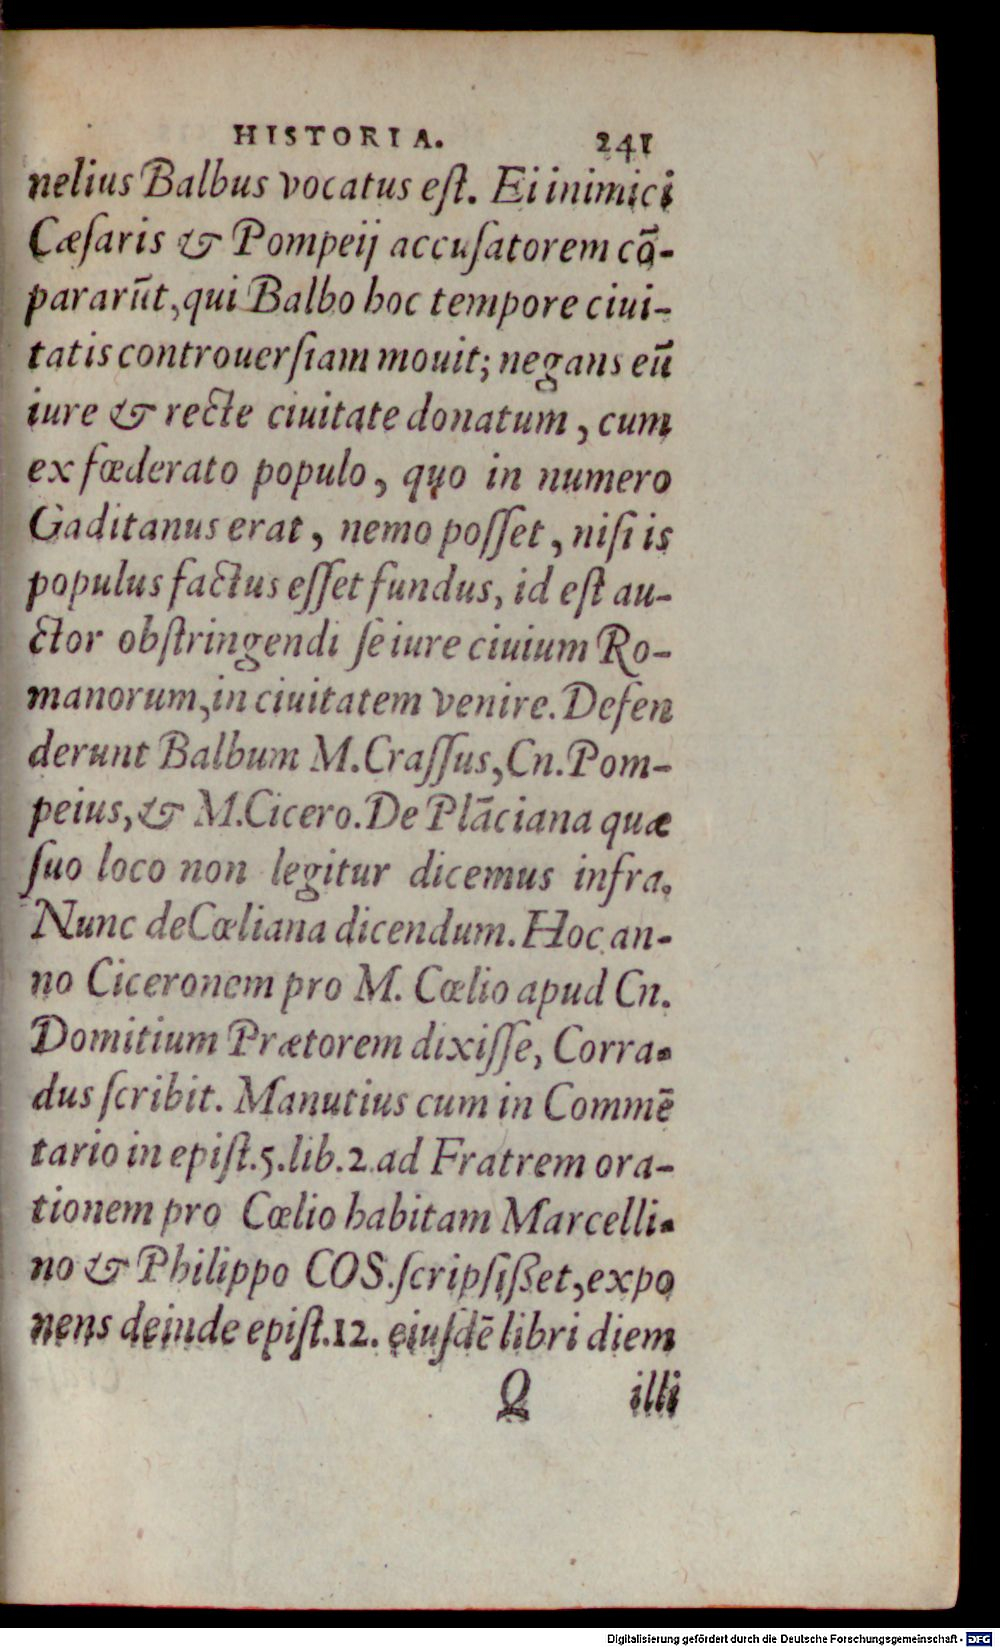 HISTORIA. 241
nelius Balbus vocatus eſt. Ei inimici
Cæſaris & Pompeij accuſatorem cō-
pararūt, qui Balbo hoc tempore ciui-
tatis controuerſiam mouit; negans eū
iure & recte ciuitate donatum, cum
ex fœderato populo, quo in numero
Gaditanus erat, nemo poſſet, niſi is
populus factus eſſet fundus, id eſt au-
ctor obſtringendi ſe iure ciuium Ro-
manorum, in ciuitatem venire. Defen
derunt Balbum M. Craſſus, Cn. Pom-
peius, & M. Cicero. De Plāciana quæ
ſuo loco non legitur dicemus infra.
Nunc de Cœliana dicendum. Hoc an-
no Ciceronem pro M. Cœlio apud Cn.
Domitium Prætorem dixiſſe, Corra-
dus ſcribit. Manutius cum in Commē
tario in epiſt. 5. lib. 2 ad Fratrem ora-
tionem pro Cœlio habitam Marcelli-
no & Philippo COS. ſcripſiſſet, expo
nens deinde epiſt. 12. eiuſdē libri diem
Q illi
Digitalisierung gefördert durch die Deutsche Forschungsgemeinschaft - DFG